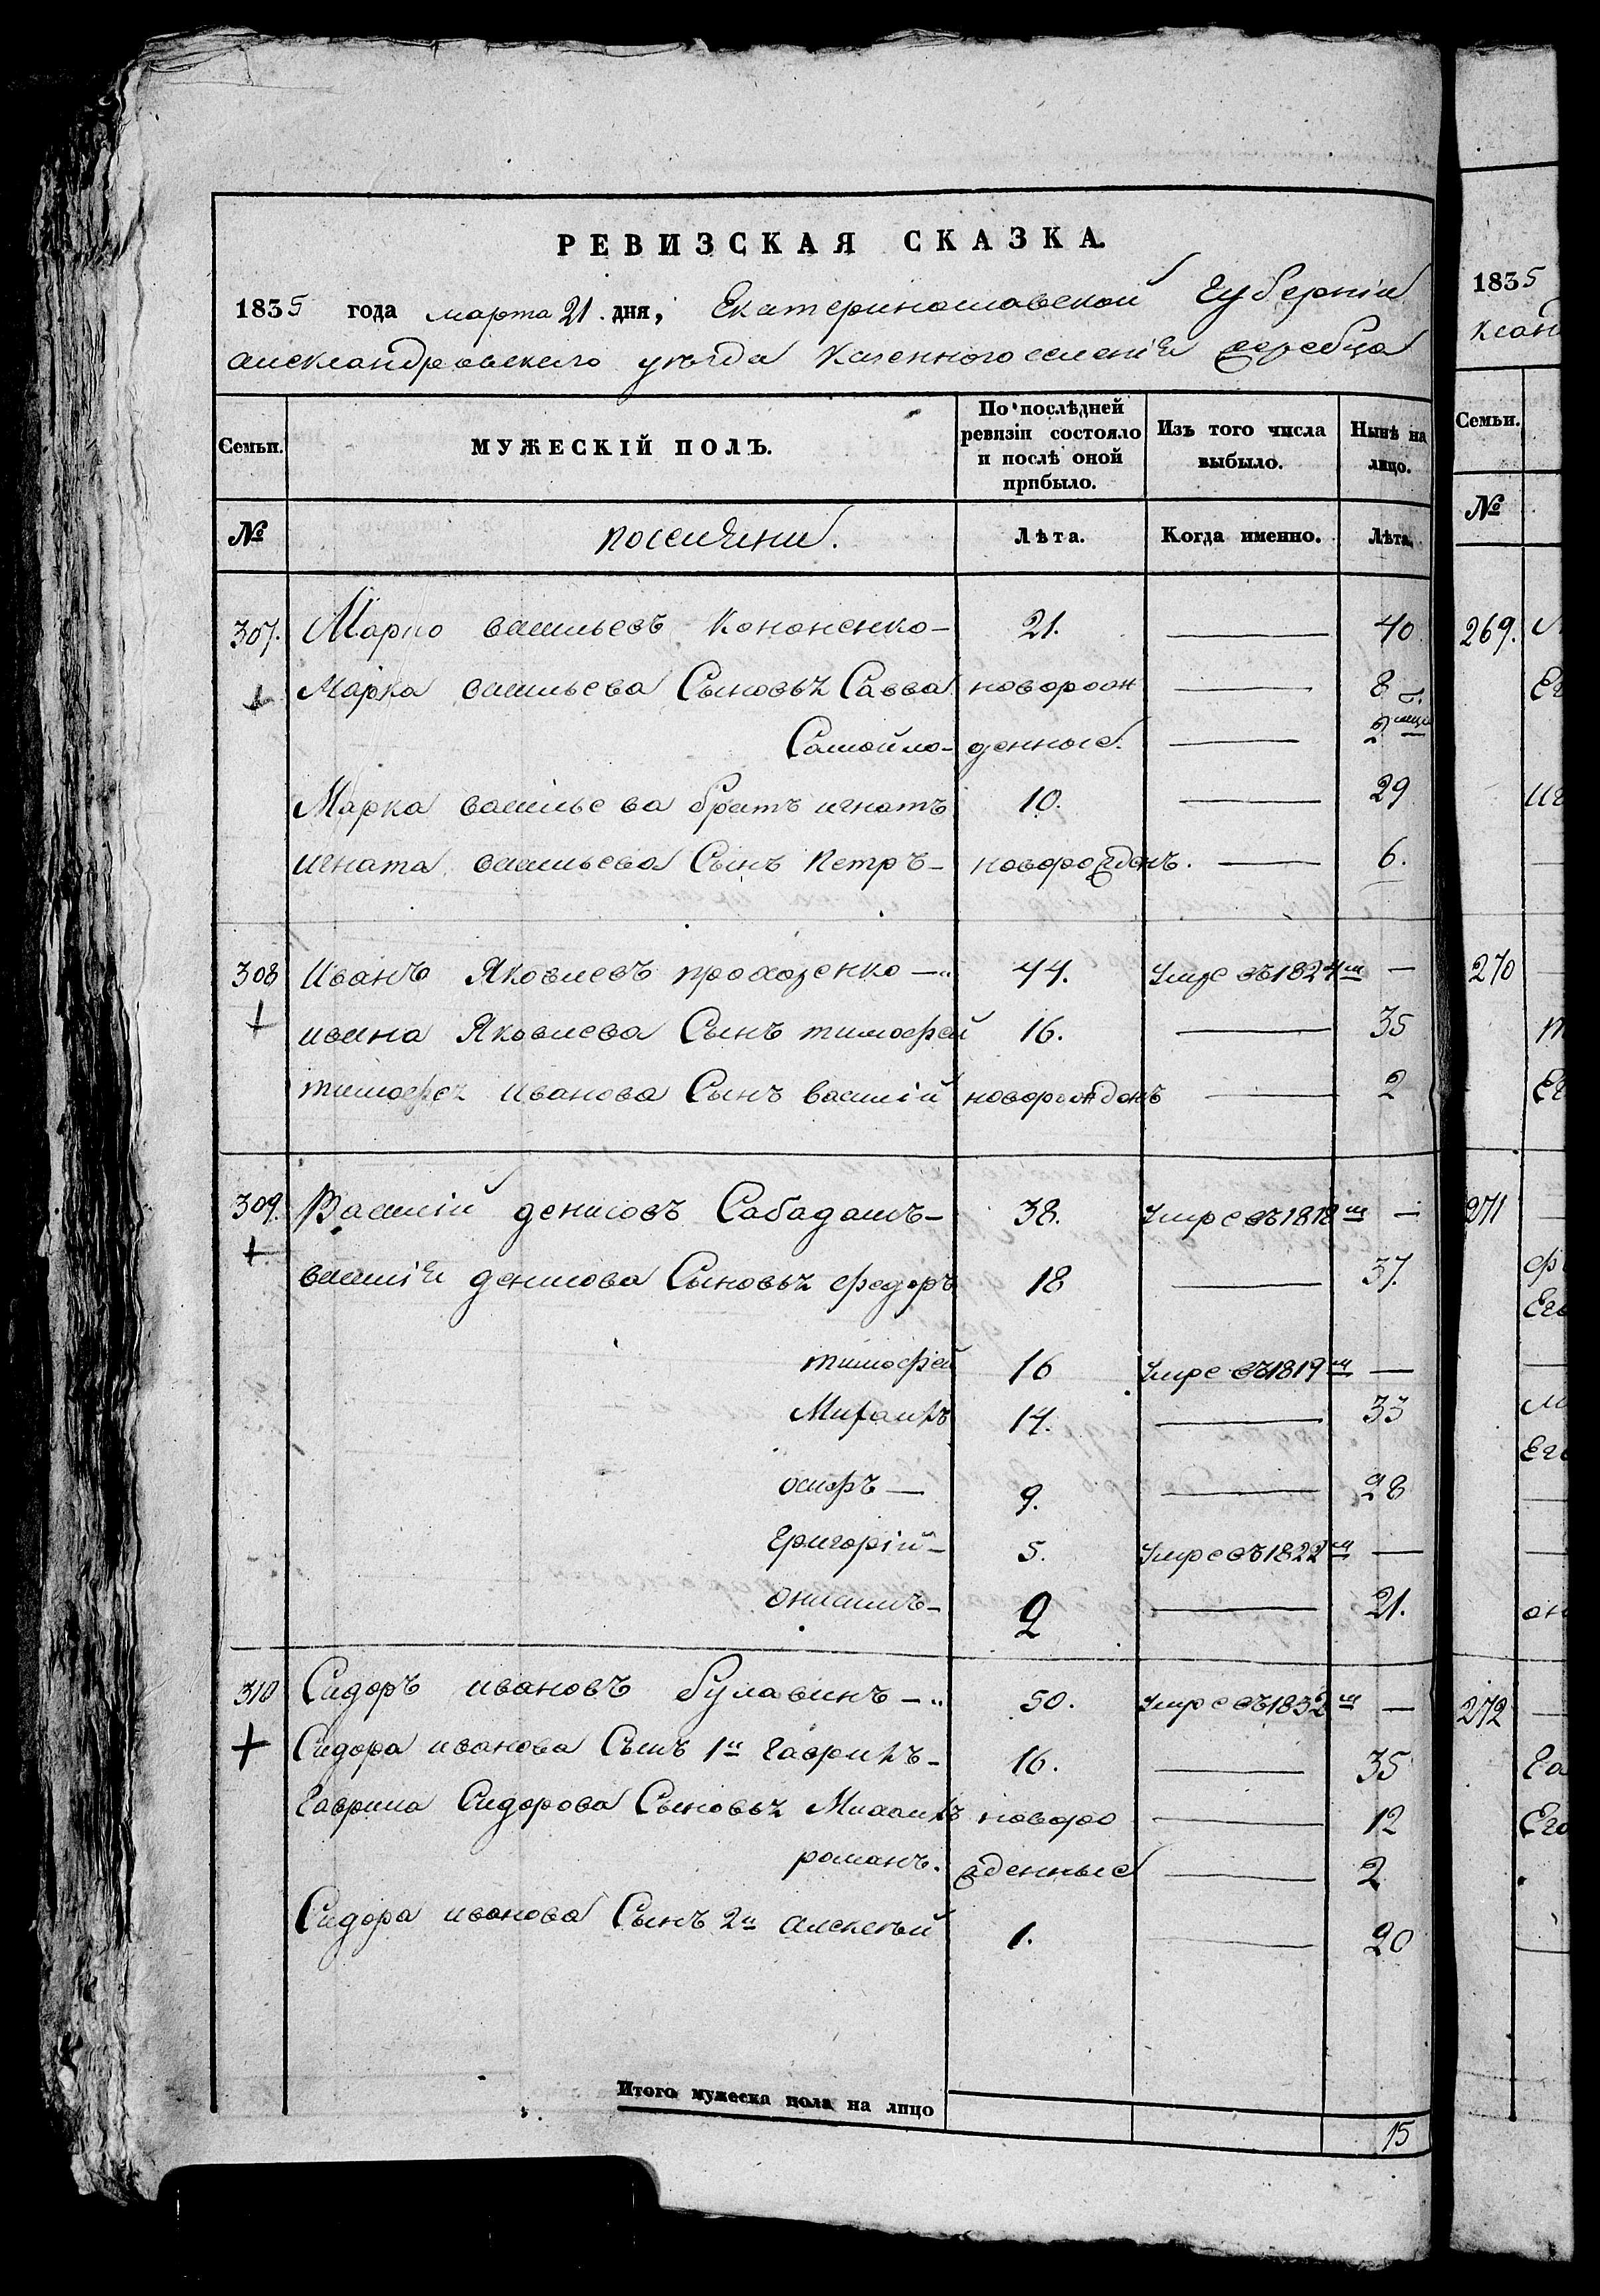 РЕВИЗСКАЯ СКАЗКА.
1835 года марта 21. дня, Екатеринославской Губерніи
александровскаго уезда казенного селенія жеребца
Семьи. МУЖЕСКІЙ ПОЛЪ. По послѣдней ревизіи состояло и послѣ оной прибыло. Изъ того числа выбыло. Нынѣ на лицо.
№ поселяни. Лѣта. Когда именно. Лѣта.
307. Марко васильевъ Кононенко 21. — 40
Марка васильева Сыновья Савва новорож — 8
Самойло денные — 2 месяца
Марка васильева братъ игнатъ 10. — 29
игната васильева Сынъ петръ новорожденъ. — 6.
308 Иванъ Яковлевъ прохоренко 44. Умре въ 1824м —
ивана Яковлева Сынъ тимофей 16. — 35
тимофея иванова Сынъ василій новорожденъ — 2
309. Василій денисовъ Сабадашъ 38. Умре въ 1818м —
василія денисова Сыновья федоръ 18 — 37.
тимофей 16 Умре въ 1819м —
Михаилъ 14. — 33
осифъ 9. — 28
Григорій 5. Умре въ 1822м —
онисимъ 2 — 21.
310 Сидоръ ивановъ булавинъ 50. Умре въ 1832м —
Сидора иванова Сынъ 1й Гаврилъ 16. — 35
Гаврила Сидорова Сыновья Михаилъ новоро — 12
романъ. жденные — 2
Сидора иванова Сынъ 2й алексей 1. — 20
Итого мужеска пола на лицо 15
1835
Семьи.
№
269.
270
271
Его
272
Га
Его